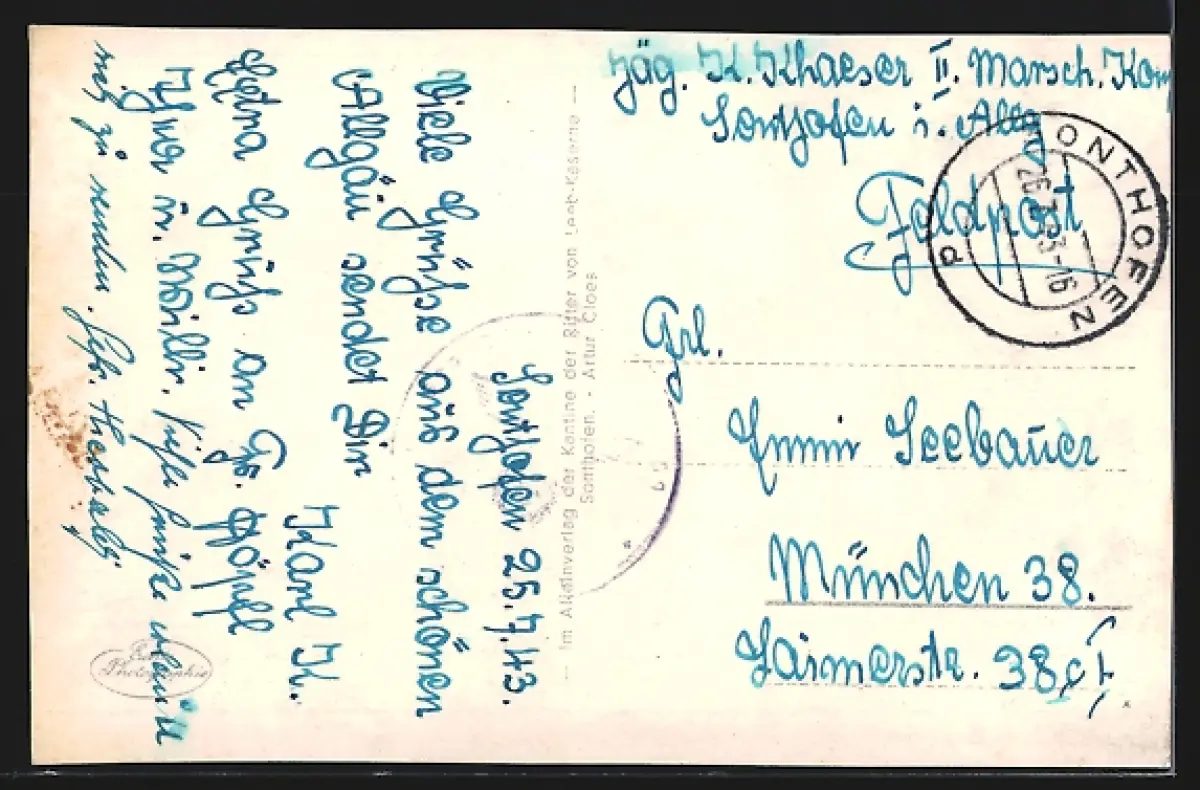 Jäg. K. Khaeser II. Marsch. Kom
Sonthofen i. Allg
Feldpost
SONTHOFEN
26.7.43-16
Frl.
Emmi Seebauer
München 38.
Laimerstr. 38
Sonthofen 25.7.43.
Viele Grüße aus dem schönen
Allgäu sendet Dir
Karl K.
Extra Gruß an
Im Alleinverlag der Kantine der Ritter von Leeb-Kaserne
Sonthofen. - Artur Cloes
Echte
Photographie